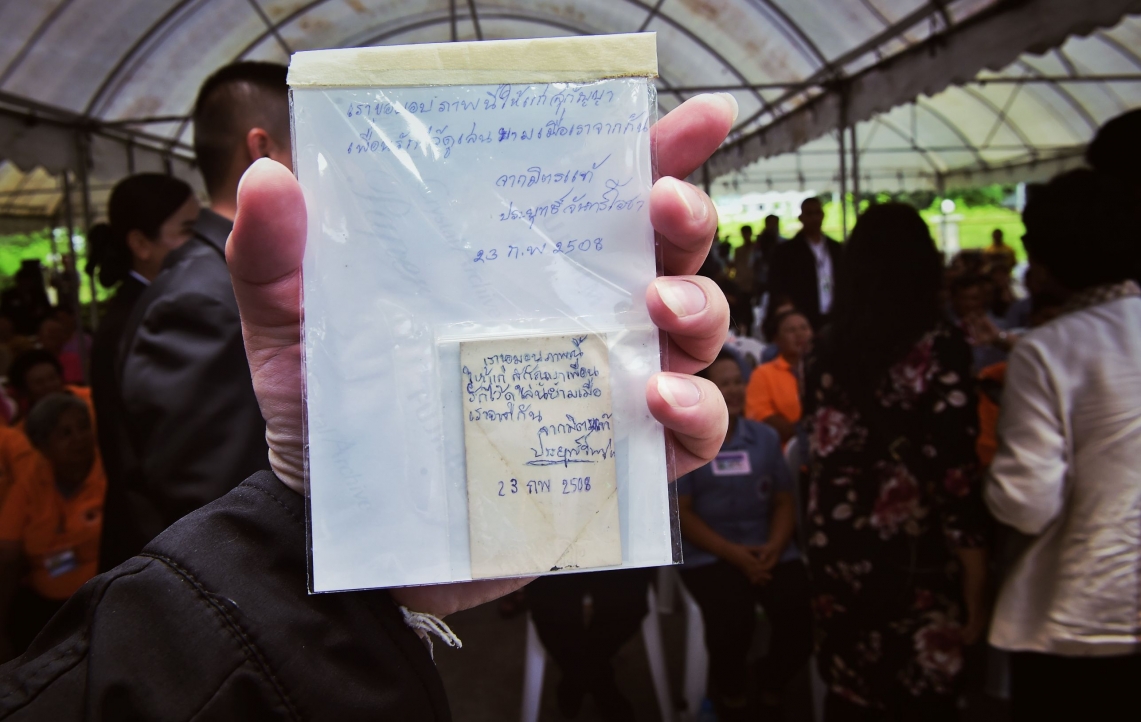 เราขอมอบภาพนี้ให้แก่สุกัญญา
เพื่อนรักไว้ดูเล่นยามเมื่อเราจากกัน
จากมิตรแท้
ประยุทธ์ จันทร์โอชา
23 ก.พ 2508
เราขอมอบภาพนี้
ให้แก่ สุกัญญาเพื่อน
รักไว้ดูเล่นยามเมื่อ
เราจากกัน
จากมิตรแท้
23 กพ 2508